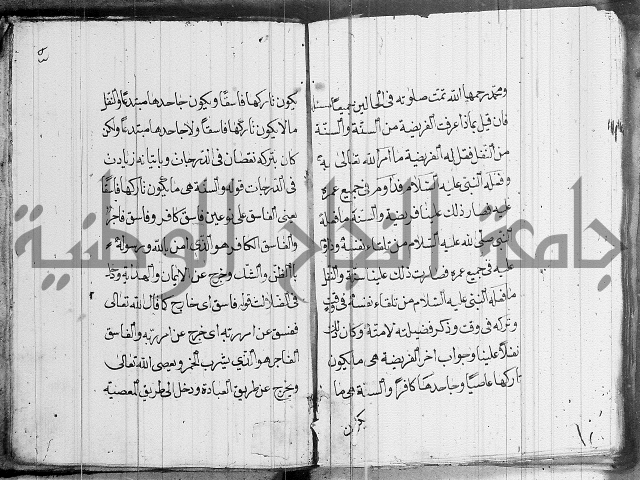 ومحمد رحمهما الله تمت صلوته في الحالين جميعا
فان قيل بماذا عرفت الفريضة من السنة والسنة
من النفل فقل له الفريضة ما امر الله تعالى به
وفعله النبي عليه السلام فداوم في جميع عمره
عليه فصار ذلك علينا فريضة والسنة ما فعله
النبي صلى الله عليه السلام من تلقاء نفسه وداوم
عليه في جميع عمره فصارت ذلك علينا سنة والنفل
ما فعله النبي عليه السلام من تلقاء نفسه في وقت
وتركه في وقت وذكر فضيلته لامته وكان ذلك
نفلا علينا وجواب اخر الفريضة هي ما يكون
تاركها عاصيا وجاحدها كافرا والسنة هي ما
يكون
يكون تاركها فاسقا ويكون جاحدها مبتدعا والنفل
ما لا يكون تاركها فاسقا ولا جاحدها مبتدعا ولكن
كان بتركه نقصان في الدرجات وباتيانه زيادت
في الدرجات قوله والسنة هي ما يكون تاركها فاسقا
يعني الفاسق على نوعين فاسق كافر وفاسق فاجر
والفاسق الكافر هو الذي امن بالله ورسوله
وخرج عن الايمان والهداية ودخل
في الضلالت قوله فاسق اي خارج كما قال الله تعالى
ففسق عن امر ربه اي خرج عن امر ربه والفاسق
الفاجر هو الذي يشرب الخمر ويعصي الله تعالى
ويخرج عن طريق العبادة ودخل الى طريق المعصية
جامعة النجاح الوطنية